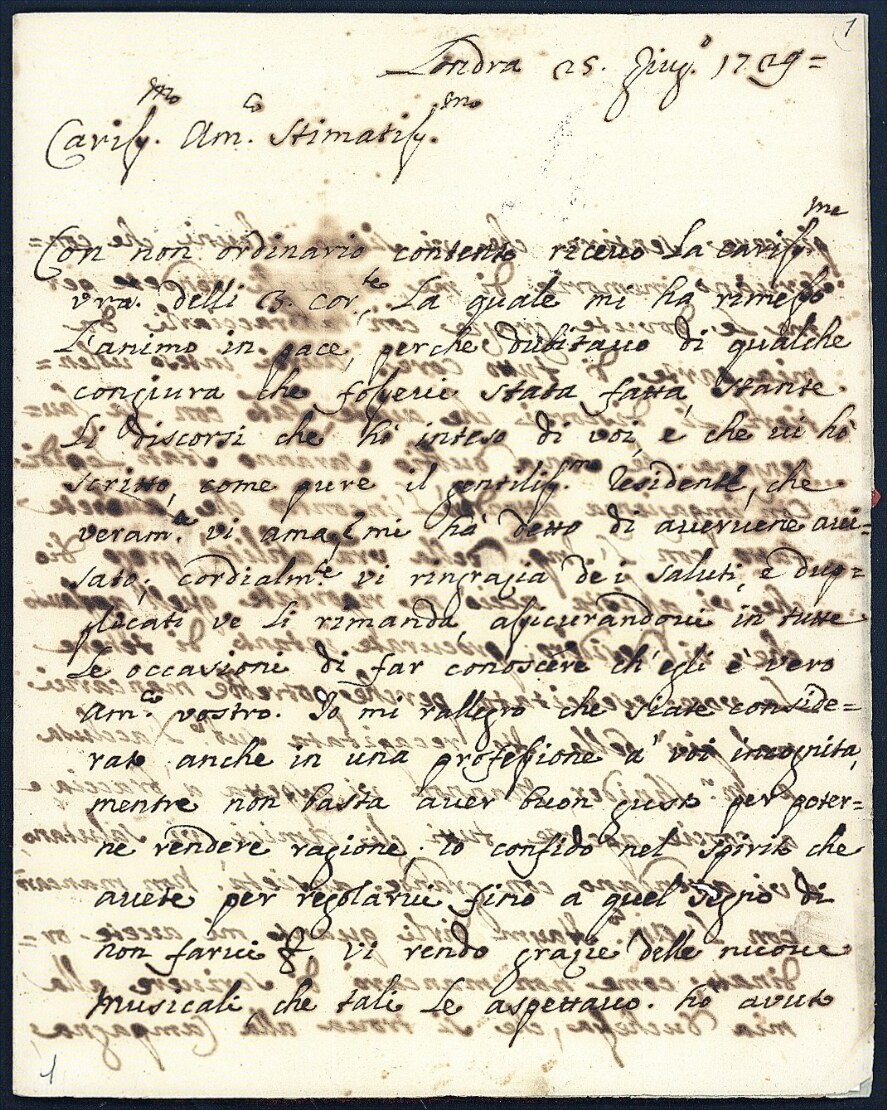 1
Londra 25. Giug.o 1729=
Cariss.mo Am.co Stimatiss.mo
Con non ordinario contento riceuo La cariss.ma
vra. delli 3. cor.te, La quale mi ha rimesso
L'animo in pace, perche dubitauo di qualche
congiura che fosseui stata fatta, stante
Li discorsi che hò inteso di voi, e che vi hò
scritto, come pure il gentiliss.mo Residente, che
veram.te vi ama, e mi hà detto di auervene aui=
sato; cordialm.te vi ringrazia dei saluti, e dup=
plicati ve Li rimanda, assicurandoui in tutte
Le occasioni di far conoscere ch'egli è vero
Am.co vostro. Io mi rallegro che siate conside=
rato anche in una professione à voi incognita,
mentre non basta auer buon gusto per poter=
ne rendere ragione; io confido nel spirito che
auete per regolarui fino a quel segno di
non farui &. vi rendo grazie delle nuoue
Musicali che tali Le aspettauo. hò avuto
1